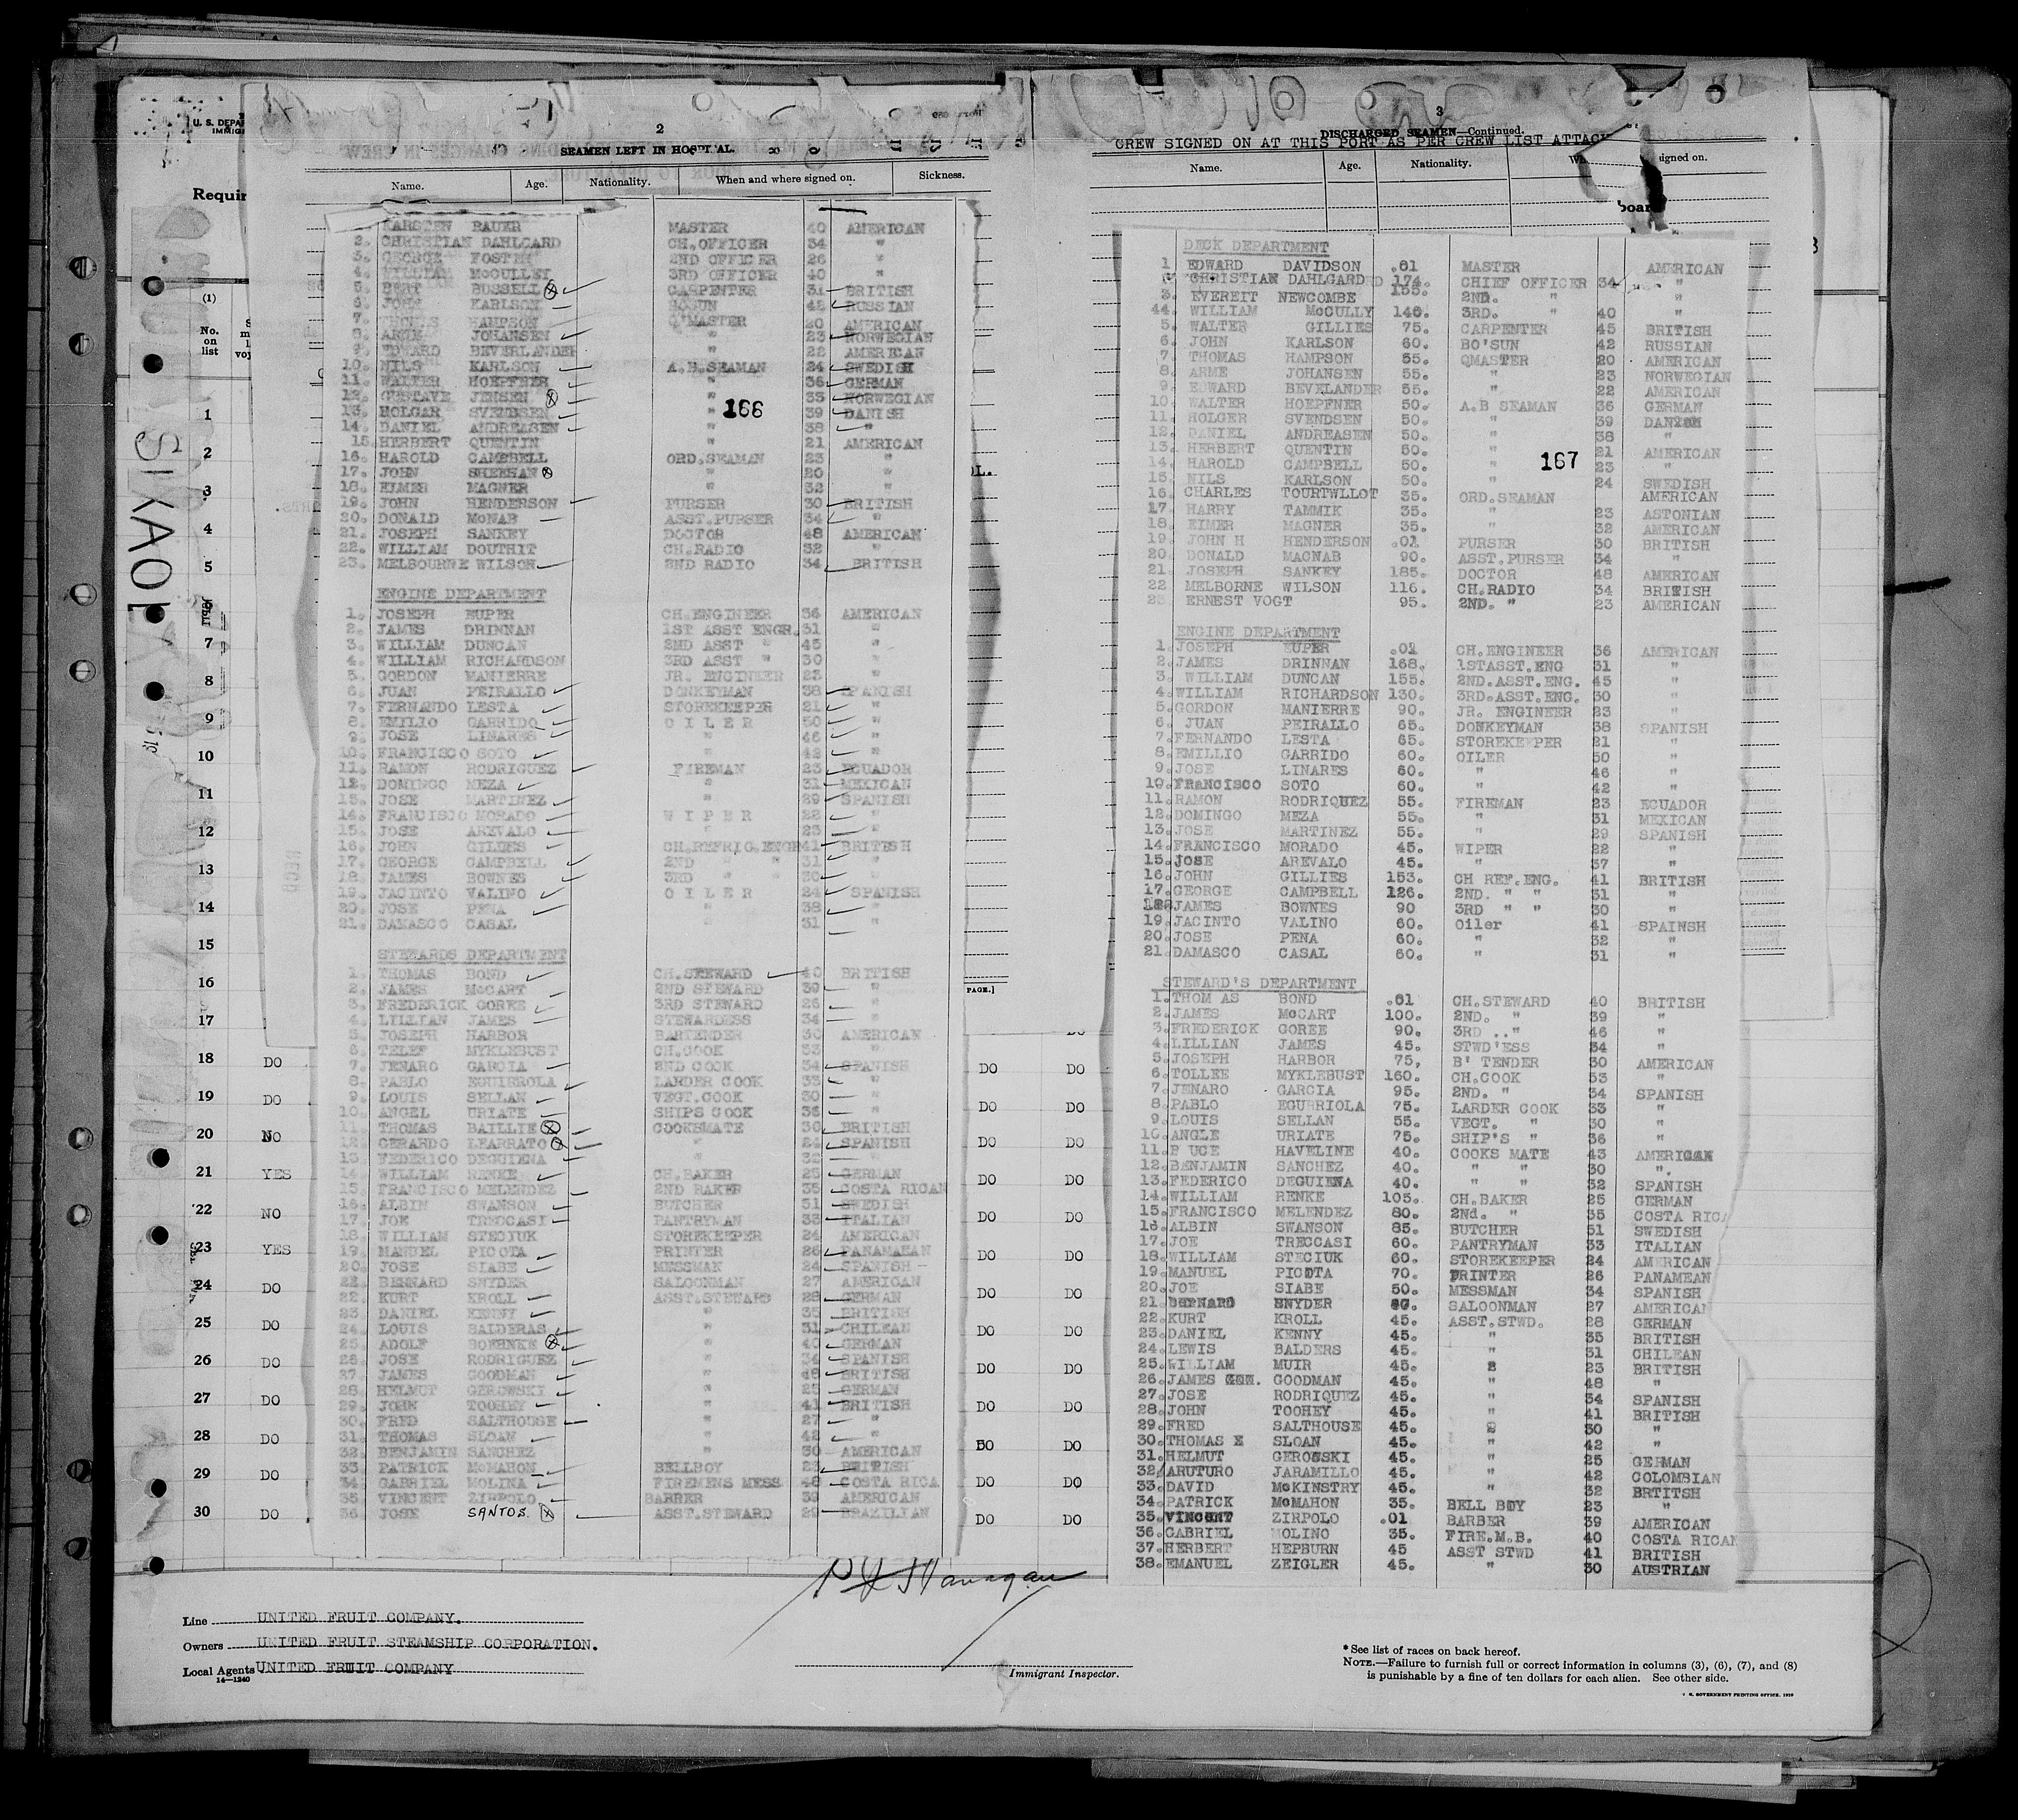 U. S. DEPA
IMMIG
2
SEAMEN LEFT IN HOSPITAL.
Name. Age. Nationality. When and where signed on. Sickness.
KARSTEN BAUER MASTER 40 AMERICAN
2. CHRISTIAN DAHLGARD CH.OFFICER 34 "
3. GEORGE FOSTER 2ND OFFICER 26 "
4. WILLIAM McCULLEY 3RD OFFICER 40 "
5. BERT BUSSELL CARPENTER 31 BRITISH
6. JOHN KARLSON BOSUN 42 RUSSIAN
7. THOMAS HAMPSON Q'MASTER 20 AMERICAN
8. ARNE JOHANSEN " 23 NORWEGIAN
9. EDWARD BEVERLANDER " 22 AMERICAN
10. NILS KARLSON A.B.SEAMAN 24 SWEDISH
11. WALTER HOEPFNER " 36 GERMAN
12. GUSTAVE JENSEN " 35 NORWEGIAN
13. HOLGAR SVENDSEN " 39 DANISH
166
14. DANIEL ANDREASEN " 38 "
15. HERBERT QUENTIN " 21 AMERICAN
16. HAROLD CAMPBELL ORD.SEAMAN 23 "
17. JOHN SHEEHAN " 20 "
18. ELMER MAGNER " 32 "
19. JOHN HENDERSON PURSER 30 BRITISH
20. DONALD McNAB ASST.PURSER 34 "
21. JOSEPH SANKEY DOCTOR 48 AMERICAN
22. WILLIAM DOUTHIT CH.RADIO 32 "
23. MELBOURNE WILSON 2ND RADIO 34 BRITISH
ENGINE DEPARTMENT
1. JOSEPH EUPER CH.ENGINEER 36 AMERICAN
2. JAMES DRINNAN 1ST ASST ENGR. 31 "
3. WILLIAM DUNCAN 2ND ASST " 45 "
4. WILLIAM RICHARDSON 3RD ASST " 30 "
5. GORDON MANIERRE JR. ENGINEER 23 "
6. JUAN PEIRALLO DONKEYMAN 38 SPANISH
7. FERNANDO LESTA STOREKEEPER 21 "
8. EMILIO GARRIDO O I L E R 50 "
9. JOSE LINARES " 46 "
10. FRANCISCO SOTO " 42 "
11. RAMON RODRIGUEZ FIREMAN 23 ECUADOR
12. DOMINGO MEZA " 31 MEXICAN
13. JOSE MARTINEZ " 29 SPANISH
14. FRANCISCO MORADO W I P E R 22 "
15. JOSE AREVALO " 23 "
16. JOHN GILLES CH.REFRIG.ENGR 41 BRITISH
17. GEORGE CAMPBELL 2ND " " 31 "
18. JAMES BOWNES 3RD " " 30 "
19. JACINTO VALINO O I L E R 24 SPANISH
20. JOSE PENA " 38 "
21. DAMASCO CASAL " 31 "
STEWARDS DEPARTMENT
1. THOMAS BOND CH.STEWARD 40 BRITISH
2. JAMES McCART 2ND STEWARD 39 "
3. FREDERICK GOREE 3RD STEWARD 26 "
4. LILLIAN JAMES STEWARDESS 34 "
5. JOSEPH HARBOR BARTENDER 30 AMERICAN
6. TELEF MYKLEBUST CH.COOK 53 "
7. JENARO GARCIA 2ND COOK 34 SPANISH
8. PABLO EGUIRROLA LARDER COOK 33 "
9. LOUIS SELLAN VEGT.COOK 30 "
10. ANGEL URIATE SHIPS COOK 36 "
11. THOMAS BAILLIE COOKSMATE 30 BRITISH
12. GERARDO LEARRATO " 24 SPANISH
13. FEDERICO DEGUIENA " 32 "
14. WILLIAM RENKE CH.BAKER 25 GERMAN
15. FRANCISCO MELENDEZ 2ND BAKER 35 COSTA RICAN
16. ALBIN SWANSON BUTCHER 51 SWEDISH
17. JOE TRECCASI PANTRYMAN 33 ITALIAN
18. WILLIAM STECIUK STOREKEEPER 24 AMERICAN
19. MANUEL PICOTA PRINTER 26 PANAMAEAN
20. JOSE SIABE MESSMAN 24 SPANISH
22. BERNARD SNYDER SALOONMAN 27 AMERICAN
22. KURT KROLL ASST.STEWARD 28 GERMAN
23. DANIEL KENNY " 35 BRITISH
24. LOUIS BALDERAS " 31 CHILEAN
25. ADOLF BOEHNKE " 40 GERMAN
26. JOSE RODRIGUEZ " 34 SPANISH
27. JAMES GOODMAN " 48 BRITISH
28. HELMUT GEROWSKI " 25 GERMAN
29. JOHN TOOHEY " 41 BRITISH
30. FRED SALTHOUSE " 27 "
31. THOMAS SLOAN " 42 "
32. BENJAMIN SANCHEZ " 30 AMERICAN
33. PATRICK McMAHON BELLBOY 23 BRITISH
34. GABRIEL MOLINA FIREMENS MESS 48 COSTA RICA
35. VINCENT ZIRPOLO BARBER 39 AMERICAN
36. JOSE SANTOS. ASST.STEWARD 29 BRAZILIAN
3
DISCHARGED SEAMEN—Continued.
CREW SIGNED ON AT THIS PORT AS PER CREW LIST ATTACH
Name. Age. Nationality. Wh signed on.
board
DECK DEPARTMENT
1 EDWARD DAVIDSON .01 MASTER AMERICAN
CHRISTIAN DAHLGARD 174. CHIEF OFFICER 34 "
3. EVEREIT NEWCOMBE 155. 2ND. " "
44. WILLIAM McCULLY 140. 3RD. " 40 "
5. WALTER GILLIES 75. CARPENTER 45 BRITISH
6. JOHN KARLSON 60. BO'SUN 42 RUSSIAN
7. THOMAS HAMPSON 55. QMASTER 20 AMERICAN
8. ARME JOHANSEN 55. " 23 NORWEGIAN
9. EDWARD BEVELANDER 55. " 22 AMERICAN
10. WALTER HOEPFNER 50. A.B SEAMAN 36 GERMAN
11. HOLGER SVENDSEN 50. " 39 DANISH
12. DANIEL ANDREASEN 50. " 38 "
13. HERBERT QUENTIN 50. " 21 AMERICAN
14. HAROLD CAMPBELL 50. " 23 "
167
15. NILS KARLSON 50. " 24 SWEDISH
16. CHARLES TOURTWLLOT 35. ORD.SEAMAN AMERICAN
17. HARRY TAMMIK 35. " 23 ASTONIAN
18. EIMER MAGNER 35. " 32 AMERICAN
19. JOHN H HENDERSON .01 PURSER 30 BRITISH
20. DONALD MACNAB 90. ASST.PURSER 34 "
21. JOSEPH SANKEY 185. DOCTOR 48 AMERICAN
22 MELBORNE WILSON 116. CH.RADIO 34 BRITISH
23 ERNEST VOGT 95. 2ND. " 23 AMERICAN
ENGINE DEPARTMENT
1. JOSEPH EUPER .01 CH.ENGINEER 36 AMERICAN
2. JAMES DRINNAN 168. 1STASST.ENG 31 "
3. WILLIAM DUNCAN 155. 2ND.ASST.ENG. 45 "
4. WILLIAM RICHARDSON 130. 3RD.ASST.ENG. 30 "
5. GORDON MANIERRE 90. JR. ENGINEER 23 "
6. JUAN PEIRALLO 65. DONKEYMAN 38 SPANISH
7. FERNANDO LESTA 65. STOREKEEPER 21 "
8. EMILLIO GARRIDO 60. OILER 50 "
9. JOSE LINARES 60. " 46 "
10. FRANCISCO SOTO 60. " 42 "
11. RAMON RODRIQUEZ 55. FIREMAN 23 ECUADOR
12. DOMINGO MEZA 55. " 31 MEXICAN
13. JOSE MARTINEZ 55. " 29 SPANISH
14. FRANCISCO MORADO 45. WIPER 22 "
15. JOSE AREVALO 45. " 37 "
16. JOHN GILLIES 153. CH REF.ENG. 41 BRITISH
17. GEORGE CAMPBELL 126. 2ND. " " 31 "
18. JAMES BOWNES 90 3RD " " 30 "
19. JACINTO VALINO 60. Oiler 41 SPAINSH
20. JOSE PENA 60. " 32 "
21. DAMASCO CASAL 60. " 31 "
STEWARD'S DEPARTMENT
1. THOM AS BOND .01 CH.STEWARD 40 BRITISH
2. JAMES McCART 100. 2ND. " 39 "
3. FREDERICK GOREE 90. 3RD .." 46 "
4. LILLIAN JAMES 45. STWD'ESS 34 "
5. JOSEPH HARBOR 75, B' TENDER 30 AMERICAN
6. TOLLEE MYKLEBUST 160. CH.COOK 53 "
7. JENARO GARCIA 95. 2ND. " 34 SPANISH
8. PABLO EGURRIOLA 75. LARDER COOK 33 "
9. LOUIS SELLAN 55. VEGT. " 30 "
10. ANGLE URIATE 75. SHIP'S " 36 "
11. B UCE HAVELINE 40. COOKS MATE 43 AMERICAN
12. BENJAMIN SANCHEZ 40. " " 30 ".
13. FEDERICO DEGUIENA 40. " " 32 SPANISH
14. WILLIAM RENKE 105. CH.BAKER 25 GERMAN
15. FRANCISCO MELENDEZ 80. 2Nd. " 35 COSTA RICA
16. ALBIN SWANSON 85. BUTCHER 51 SWEDISH
17. JOE TRECCASI 60. PANTRYMAN 33 ITALIAN
18. WILLIAM STECIUK 60. STOREKEEPER 24 AMERICAN
19. MANUEL PICOTA 70. PRINTER 26 PANAMEAN
20. JOE SIABE 50. MESSMAN 34 SPANISH
21. BERNARD SNYDER SALOONMAN 27 AMERICAN
22. KURT KROLL 45. ASST.STWD. 28 GERMAN
23. DANIEL KENNY 45. " 35 BRITISH
24. LEWIS BALDERS 45. " 31 CHILEAN
25. WILLIAM MUIR 45. " 23 BRITISH
26. JAMES GOODMAN 45. " 48 "
27. JOSE RODRIQUEZ 45. " 34 SPANISH
28. JOHN TOOHEY 45. " 41 BRITISH
29. FRED SALTHOUSE 45. " 30 "
30. THOMAS E SLOAN 45. " 42 "
31. HELMUT GEROWSKI 45. " 25 GERMAN
32. ARUTURO JARAMILLO 45. " 42 COLOMBIAN
33. DAVID McKINSTRY 45. " 32 BRTITSH
34. PATRICK McMAHON 35. BELL BOY 23 "
35. VINCENT ZIRPOLO .01 BARBER 39 AMERICAN
36. GABRIEL MOLINO 35. FIRE.M.B. 40 COSTA RICAN
37. HERBERT HEPBURN 45 ASST STWD 41 BRITISH
38. EMANUEL ZEIGLER 45. " 30 AUSTRIAN
Requir
(1)
No.
on
list
1
2
3
4
5
7
8
9
10
11
12
13
14
15
16
17
18 DO DO DO
19 DO DO DO
20 NO DO DO
21 YES DO DO
22 NO DO DO
23 YES DO DO
24 DO DO DO
25 DO DO DO
26 DO DO DO
27 DO DO DO
28 DO DO DO
29 DO DO DO
30 DO DO DO
PAGE.]
SIXAOLA
Line UNITED FRUIT COMPANY.
Owners UNITED FRUIT STEAMSHIP CORPORATION.
Local Agents UNITED FRUIT COMPANY
14—1240
Immigrant Inspector.
* See list of races on back hereof.
NOTE.—Failure to furnish full or correct information in columns (3), (6), (7), and (8)
is punishable by a fine of ten dollars for each alien. See other side.
U. S. GOVERNMENT PRINTING OFFICE. 1929